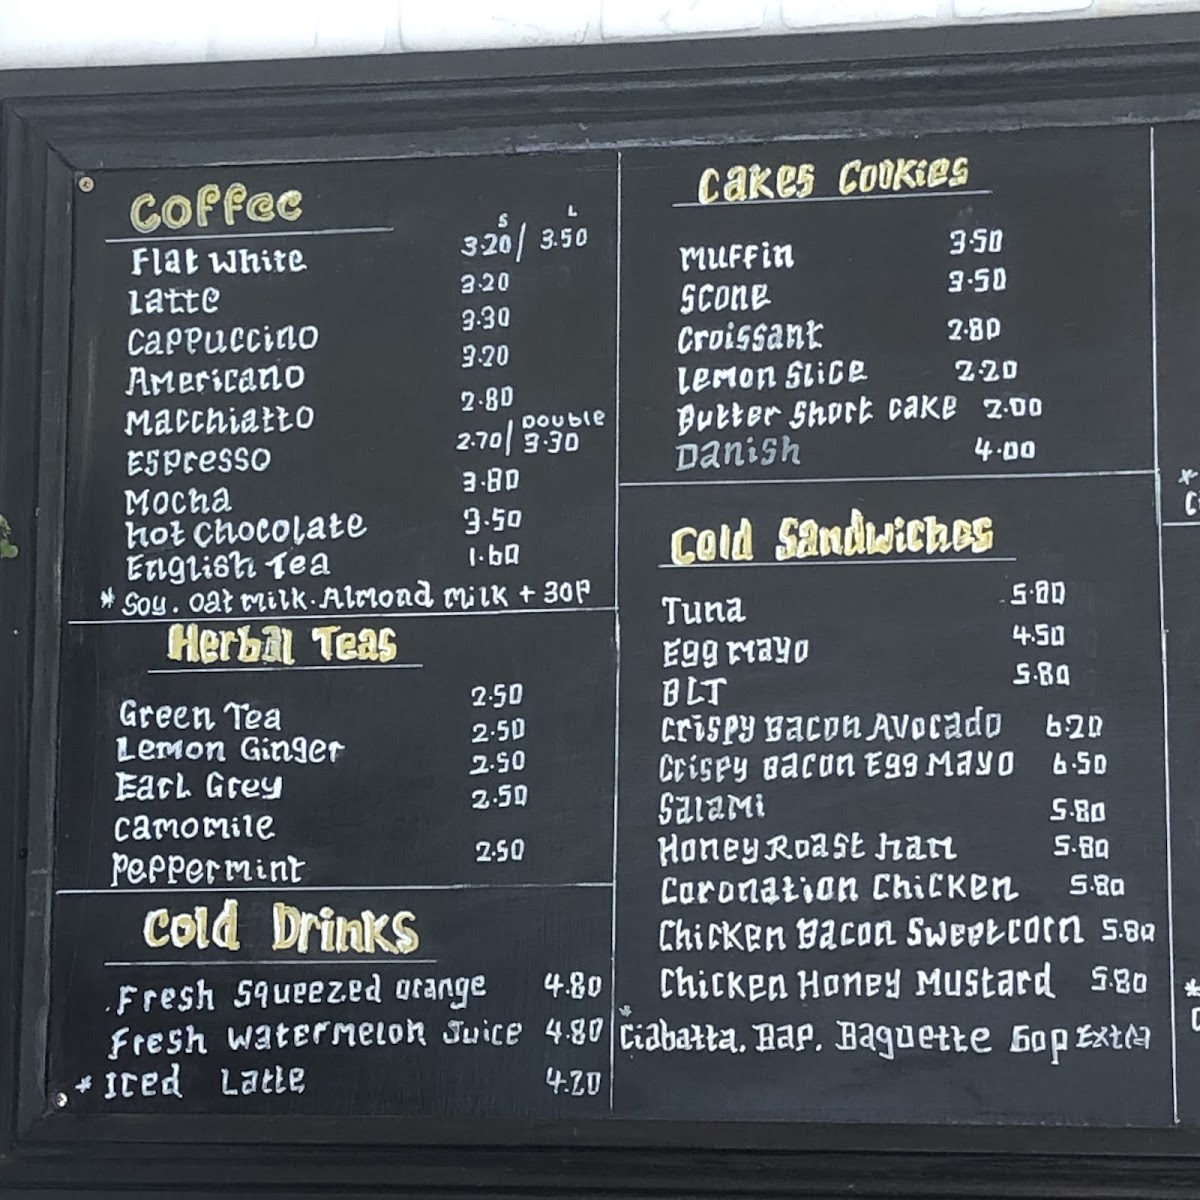 Coffee
S L
Flat White 3.20 / 3.50
Latte 3.20
Cappuccino 3.30
Americano 3.20
Macchiatto 2.80
Double
Espresso 2.70 / 3.30
Mocha 3.80
Hot Chocolate 3.50
English Tea 1.60
* Soy. Oat Milk. Almond Milk + 30P
Herbal Teas
Green Tea 2.50
Lemon Ginger 2.50
Earl Grey 2.50
Camomile 2.50
Peppermint 2.50
Cold Drinks
Fresh Squeezed Orange 4.80
Fresh Watermelon Juice 4.80
* Iced Latte 4.20
Cakes Cookies
Muffin 3.50
Scone 3.50
Croissant 2.80
Lemon Slice 2.20
Butter Short Cake 2.00
Danish 4.00
Cold Sandwiches
Tuna 5.80
Egg Mayo 4.50
BLT 5.80
Crispy Bacon Avocado 6.20
Crispy Bacon Egg Mayo 6.50
Salami 5.80
Honey Roast Ham 5.80
Coronation Chicken 5.80
Chicken Bacon Sweetcorn 5.80
Chicken Honey Mustard 5.80
* Ciabatta. Bap. Baguette 60p Extra